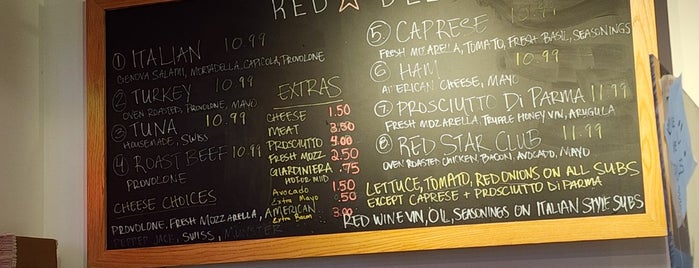 RED ☆ DEL
① ITALIAN 10.99
GENOVA SALAMI, MORTADELLA, CAPICOLA, PROVOLONE
② TURKEY 10.99
OVEN ROASTED, PROVOLONE, MAYO
③ TUNA 10.99
HOUSEMADE, SWISS
④ ROAST BEEF 10.99
PROVOLONE
CHEESE CHOICES
PROVOLONE, FRESH MOZZARELLA, AMERICAN
PEPPER JACK, SWISS, MUNSTER
EXTRAS
CHEESE 1.50
MEAT 3.50
PROSCIUTTO 4.00
FRESH MOZZ 2.50
GUARDINIERA .75
HOT OR MILD
AVOCADO 1.50
EXTRA MAYO .50
EXTRA BACON 3.00
⑤ CAPRESE 10.99
FRESH MOZARELLA, TOMATO, FRESH BASIL, SEASONINGS
⑥ HAM 10.99
AMERICAN CHEESE, MAYO
⑦ PROSCIUTTO DI PARMA 11.99
FRESH MOZARELLA, TRUFFLE HONEY VIN, ARUGULA
⑧ RED STAR CLUB 11.99
OVEN ROASTED CHICKEN, BACON, AVOCADO, MAYO
LETTUCE, TOMATO, RED ONIONS ON ALL SUBS
EXCEPT CAPRESE + PROSCIUTTO DI PARMA
RED WINE VIN, OIL, SEASONINGS ON ITALIAN STYLE SUBS